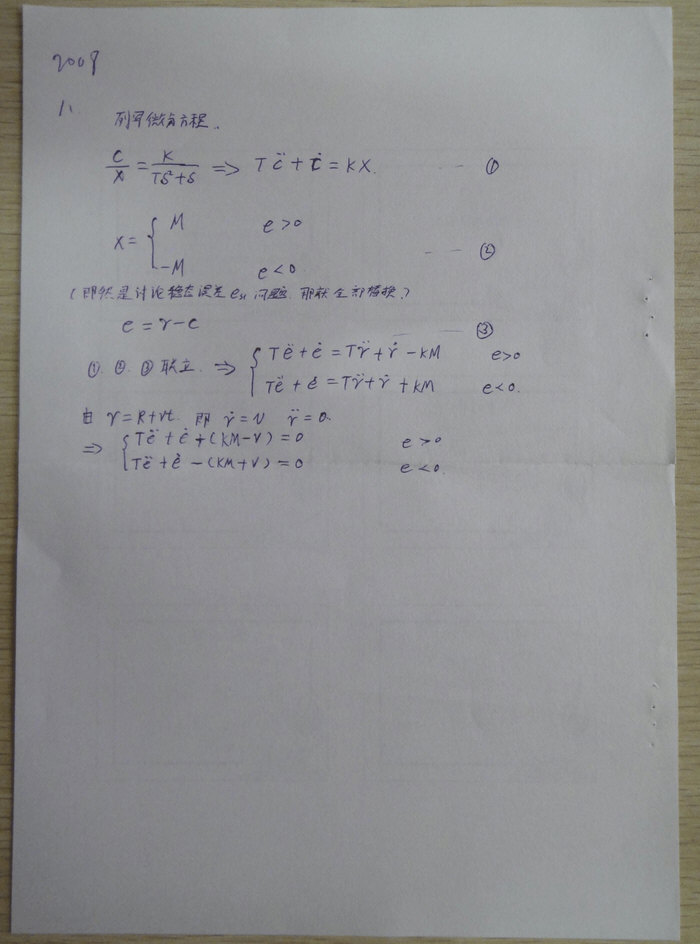 2008
1、 列写微分方程.
C/X = K/(TS²+S) ⇒ Tc̈ + ċ = KX. —— ①
X = { M e>0
-M e<0 —— ②
(即然是讨论稳态误差 ess 问题. 那就全部替换.)
e = r-c —— ③
①. ②. ③ 联立. ⇒ { Të + ė = Tr̈ + ṙ - KM e>0
Të + ė = Tr̈ + ṙ + KM e<0.
由 r = R+vt. 即 ṙ = v r̈ = 0.
⇒ { Të + ė + (KM-v) = 0 e>0
Të + ė - (KM+v) = 0 e<0.